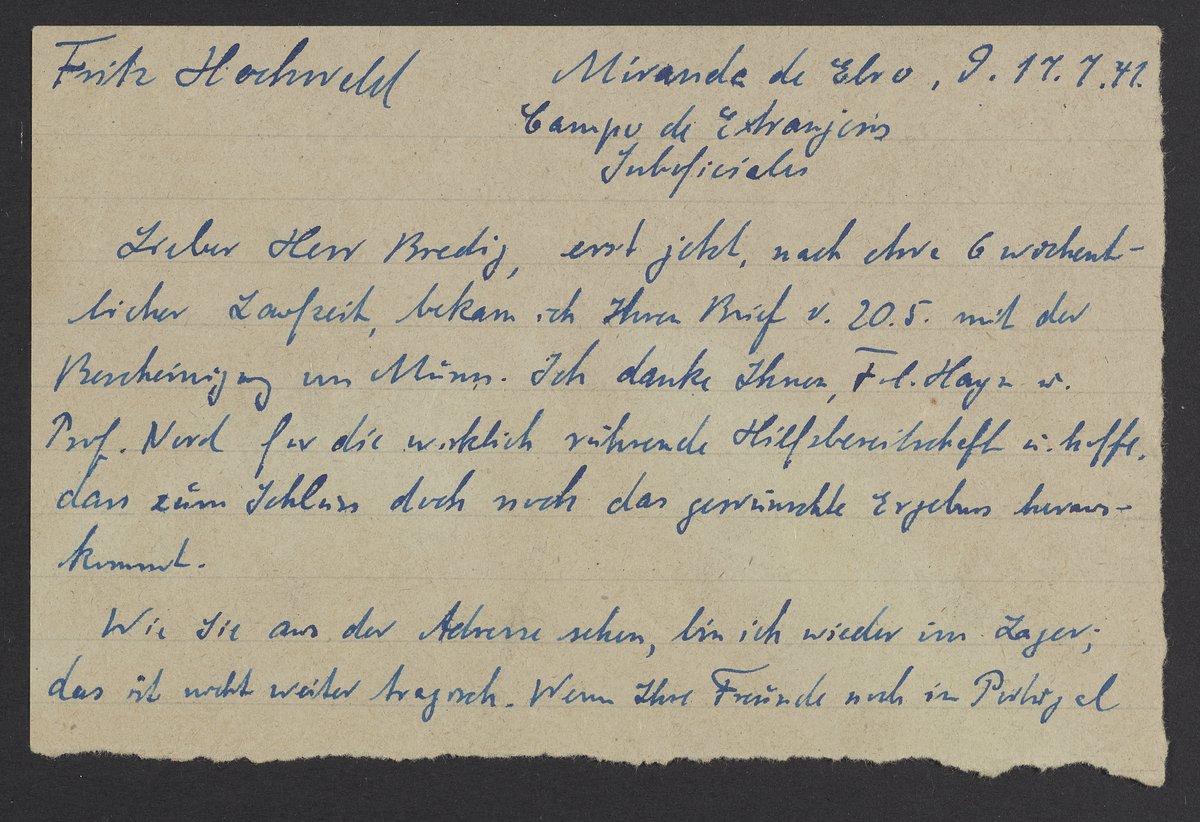 Fritz Hochwald
Miranda de Ebro, 9. 17.7.41.
Campo de Extranjeros
Suboficiales
Lieber Herr Bredig, erst jetzt, nach etwa 6 wöchent-
licher Laufzeit, bekam ich Ihren Brief v. 20.5. mit der
Bescheinigung von Münn. Ich danke Ihnen, Frl. Hayn u.
Prof. Nord für die wirklich rührende Hilfsbereitschaft u. hoffe,
dass zum Schluss doch noch das gewünschte Ergebnis heraus-
kommt.
Wie Sie aus der Adresse sehen, bin ich wieder im Lager;
das ist nicht weiter tragisch. Wenn Ihre Freunde noch in Portugal